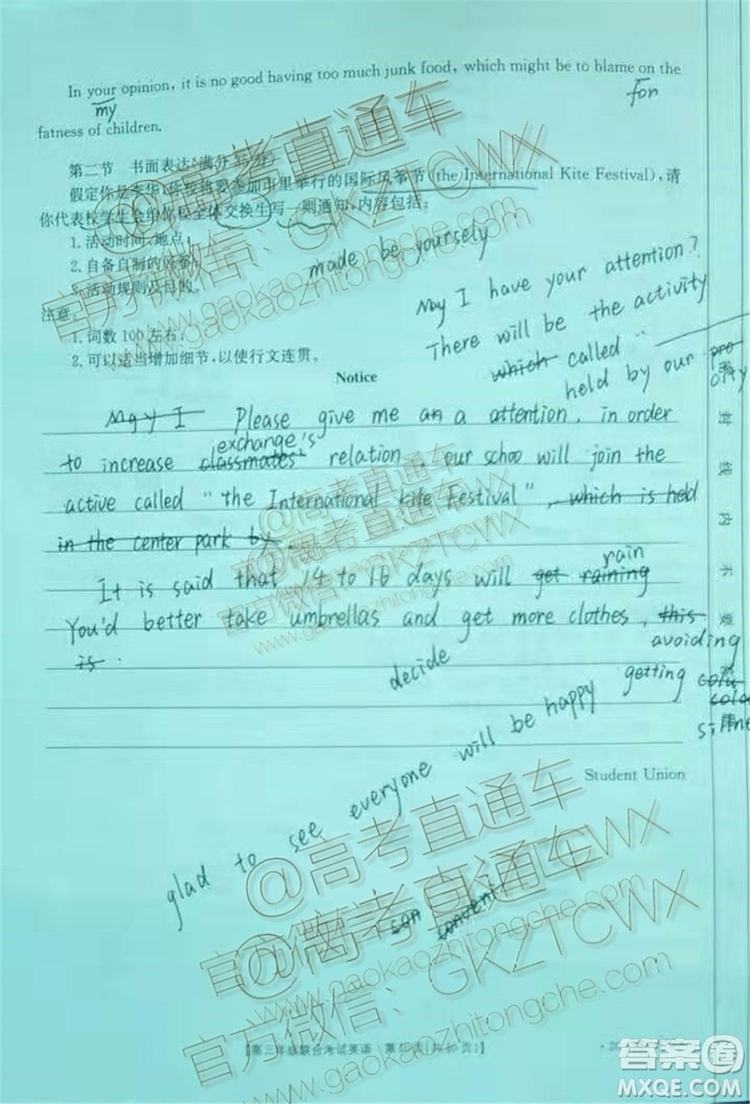 In your opinion, it is no good having too much junk food, which might be to blame on the
my
for
fatness of children.
第二节 书面表达(满分25分)
假定你是李华,你校将要参加市里举行的国际风筝节(the International Kite Festival),请
你代表校学生会给你校全体交换生写一则通知,内容包括:
1.活动时间、地点;
2.自备自制的风筝;
3.活动规则及目的。
made be yoursely
注意:
1.词数100左右;
2.可以适当增加细节,以使行文连贯。
May I have your attention?
There will be the activity
which called "
held by our pro
Notice
May I Please give me an a attention, in order
exchange's
to increase classmates' relation, our schoo will join the
active called "the International Kite Festival", which is held
in the center park by
rain
It is said that 14 to 16 days will get raining
You'd better take umbrellas and get more clothes, this
is.
avoiding
decide
getting
glad to see everyone will be happy
Student Union
con
【高三年级联合考试英语 第10页(共10页)】
密封线内不要
@高考直通车
官方微信:GKZTCWX
www.gaokaozhitongche.com
@高考直通车
官方微信:GKZTCWX
www.gaokaozhitongche.com
@高考直通车
官方微信:GKZTCWX
www.gaokaozhitongche.com
答案圈
MXQE.COM